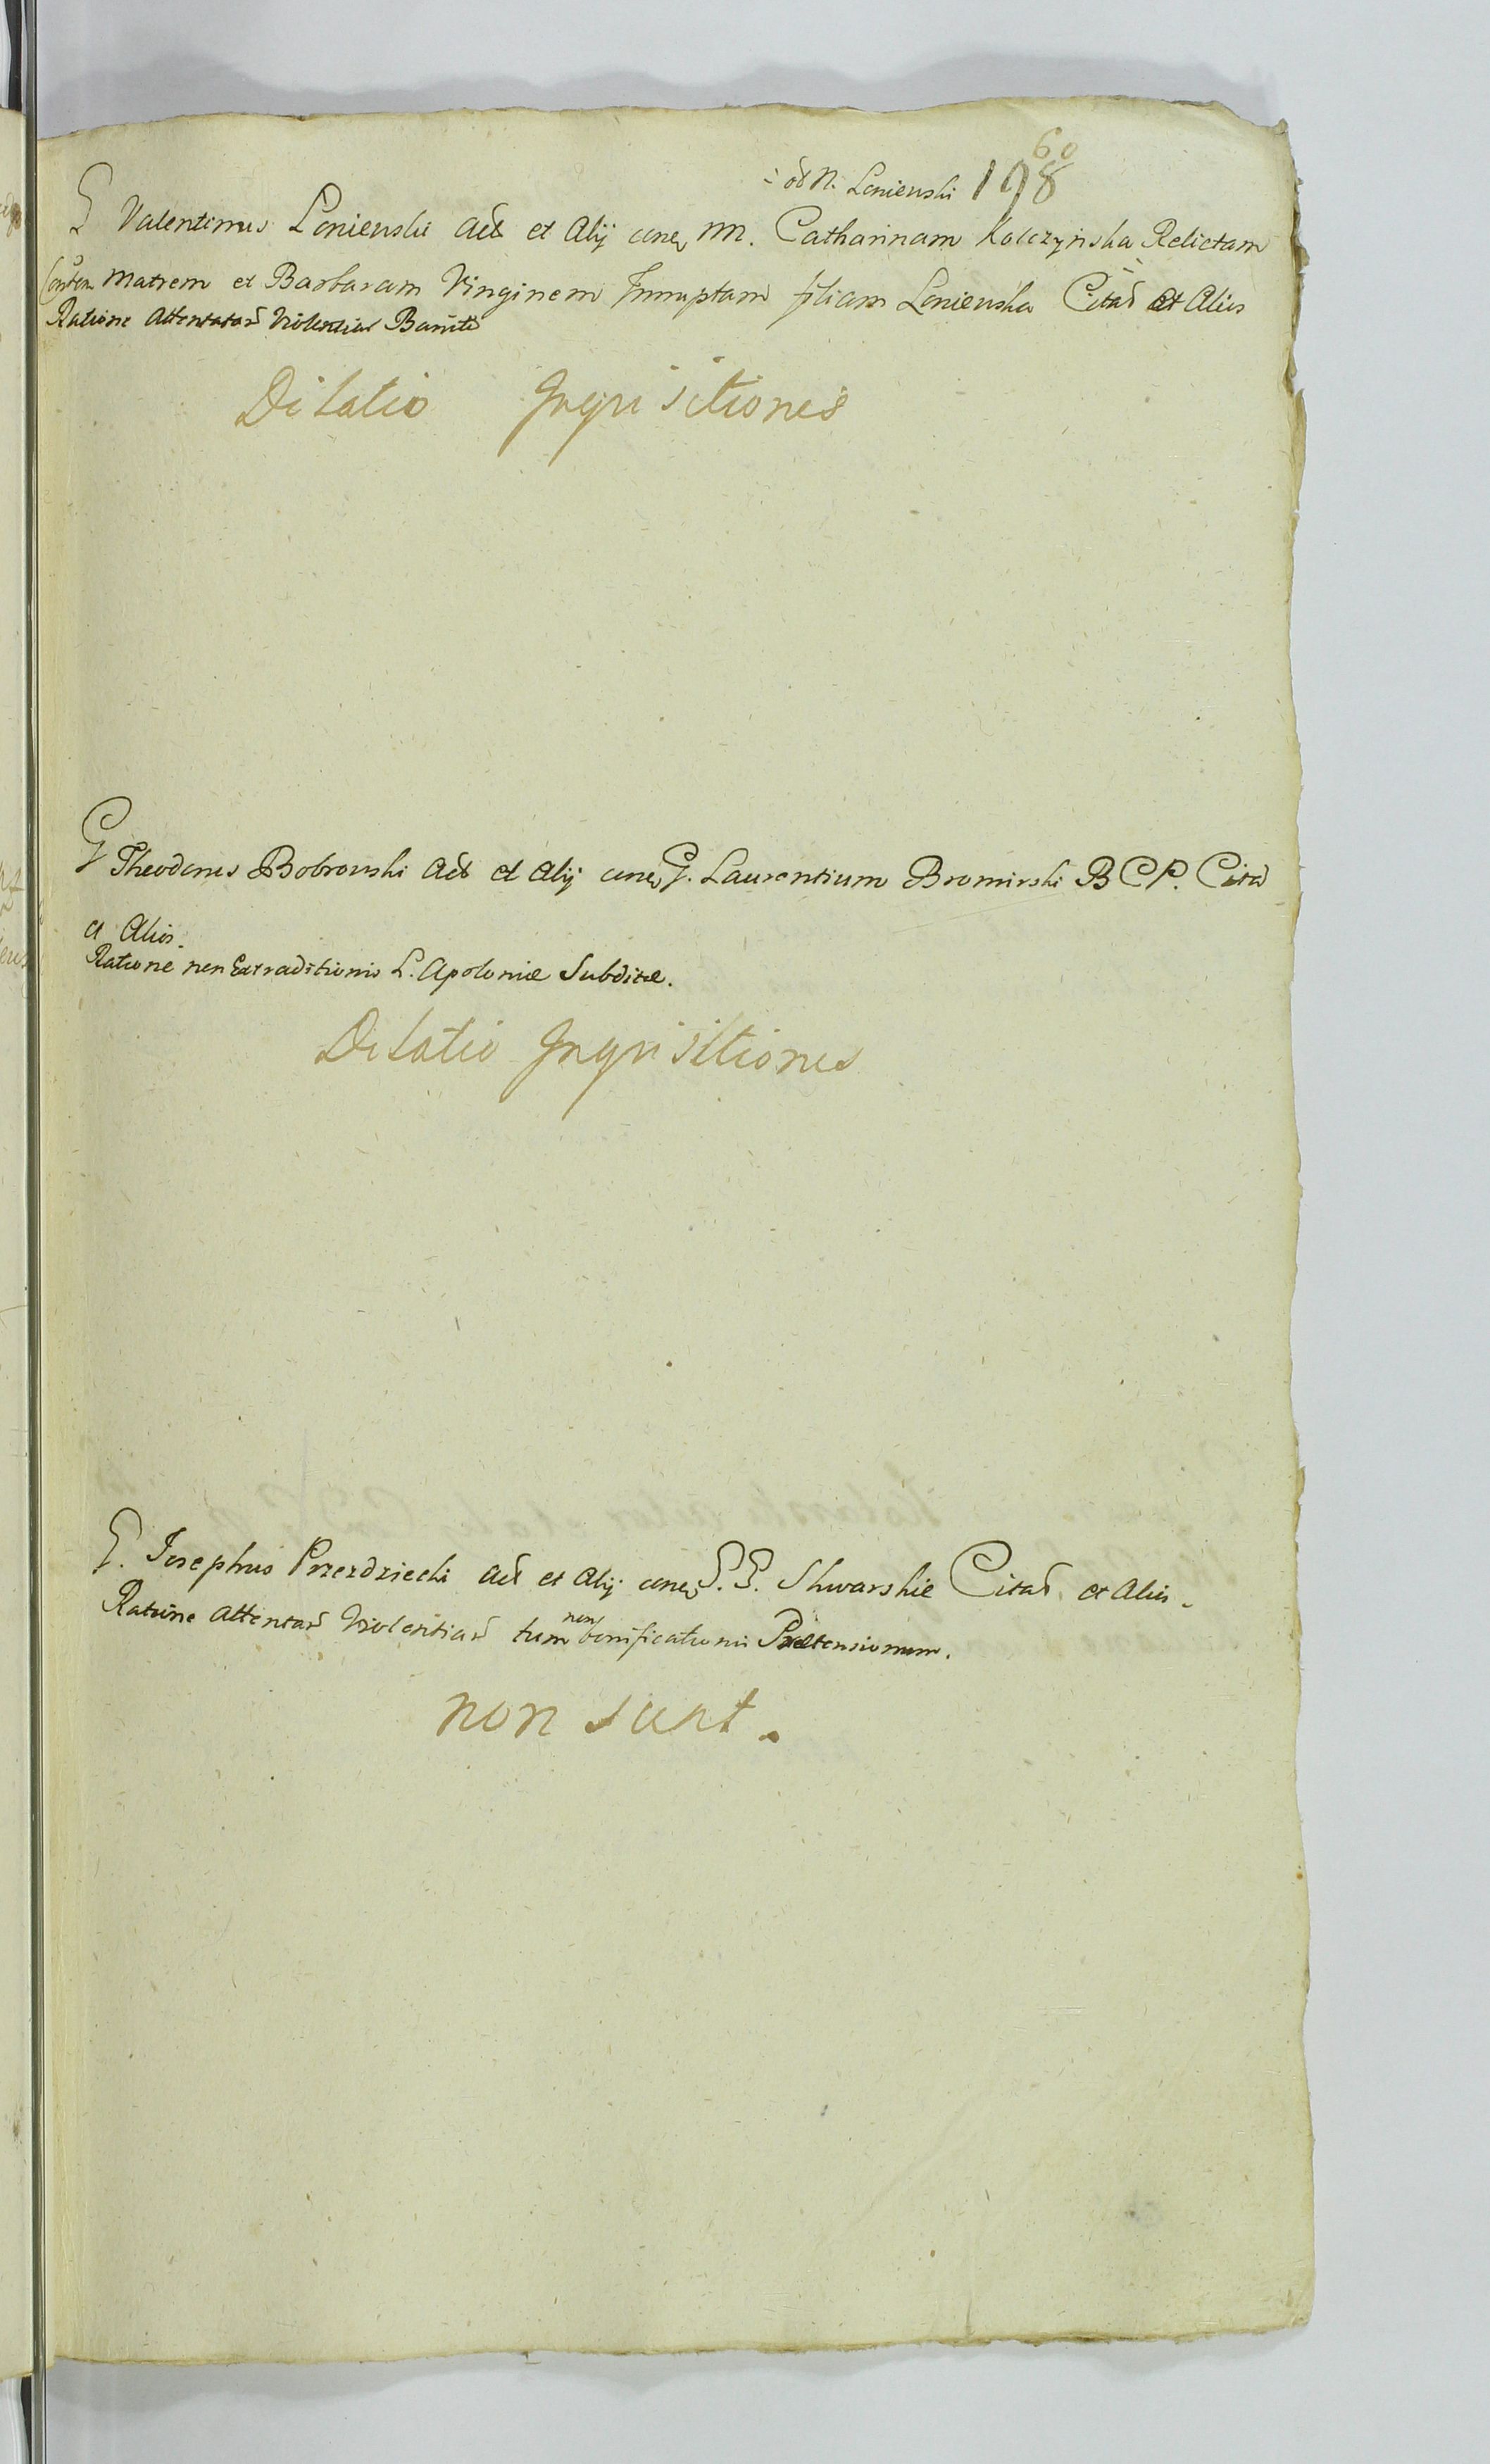 60
od N. Leniewski 198
G Valentinus Leniewski Act et Alij cones M. Catharinam Kolczyńska Relictam
Matrem et Barbaram Virginem Innuptam filiam Leniewska Citat et Alios
Ratione Attentatar Violentiar Banitt
Dilatio Inquisitiones
G Theodorus Bobrowski Act et Alij cones G. Laurentium Bromirski B C P. Citat
et Alios.
Ratione non Extraditionis L. Apoloniæ Subditæ.
Dilatio Inquisitiones
G. Josephus Przezdziecki Act et Alij cones G. G. Skwarskie Citat et Alios.
Ratione Attentar Violentiar tum non bonificationis Prætensionum.
non sunt.